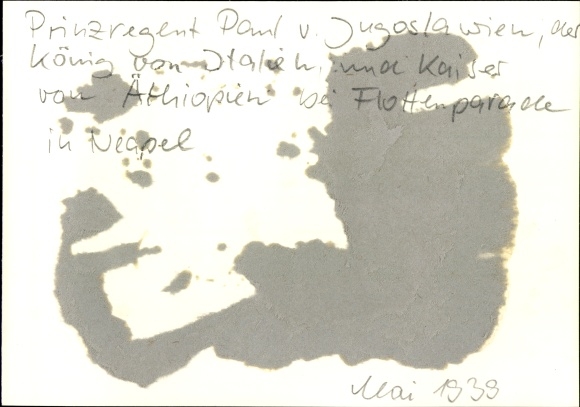 Prinzregent Paul v. Jugoslawien, der
König von Italien, und Kaiser
von Äthiopien bei Flottenparade
in Neapel
Mai 1939